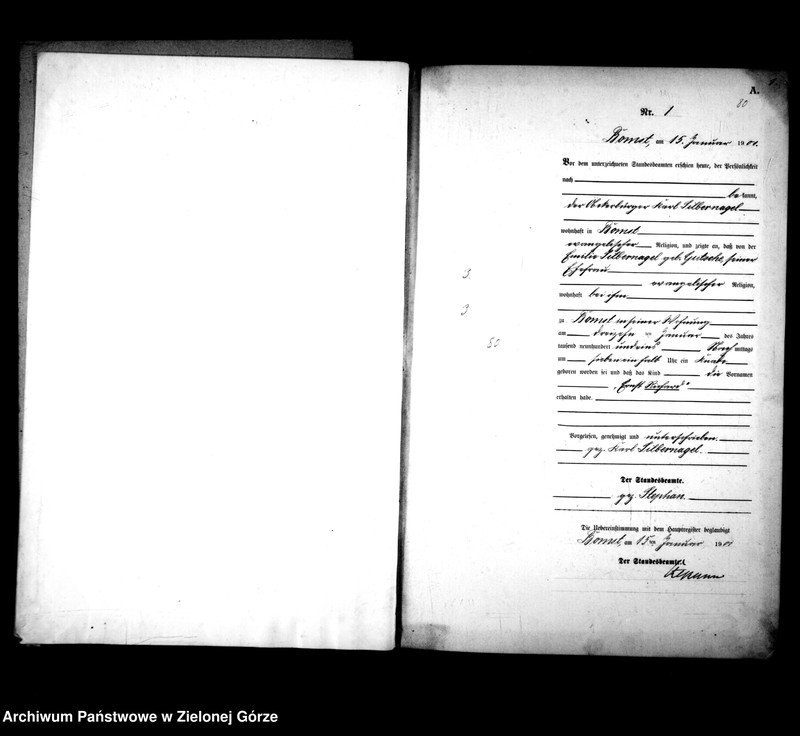 A.
80
Nr. 1
Bomst, am 15. Januar 1901.
Vor dem unterzeichneten Standesbeamten erschien heute, der Persönlichkeit
nach
bekannt,
der Ackerbürger Karl Silbernagel
wohnhaft in Bomst
evangelischer Religion, und zeigte an, daß von der
Emilie Silbernagel geb. Gutsche, seiner
Ehefrau
evangelischer Religion,
3.
wohnhaft bei ihm
3.
zu Bomst in seiner Wohnung
am dreizehnten Januar des Jahres
80
tausend neunhundert und eins Vormittags
um sieben ein halb Uhr ein Knabe
geboren worden sei und daß das Kind die Vornamen
„Ernst Richard“
erhalten habe.
Vorgelesen, genehmigt und unterschrieben.
gez. Karl Silbernagel.
Der Standesbeamte.
gez. Stephan.
Die Uebereinstimmung mit dem Hauptregister beglaubigt
Bomst, am 15ten Januar 1901
Der Standesbeamte.
Archiwum Państwowe w Zielonej Górze